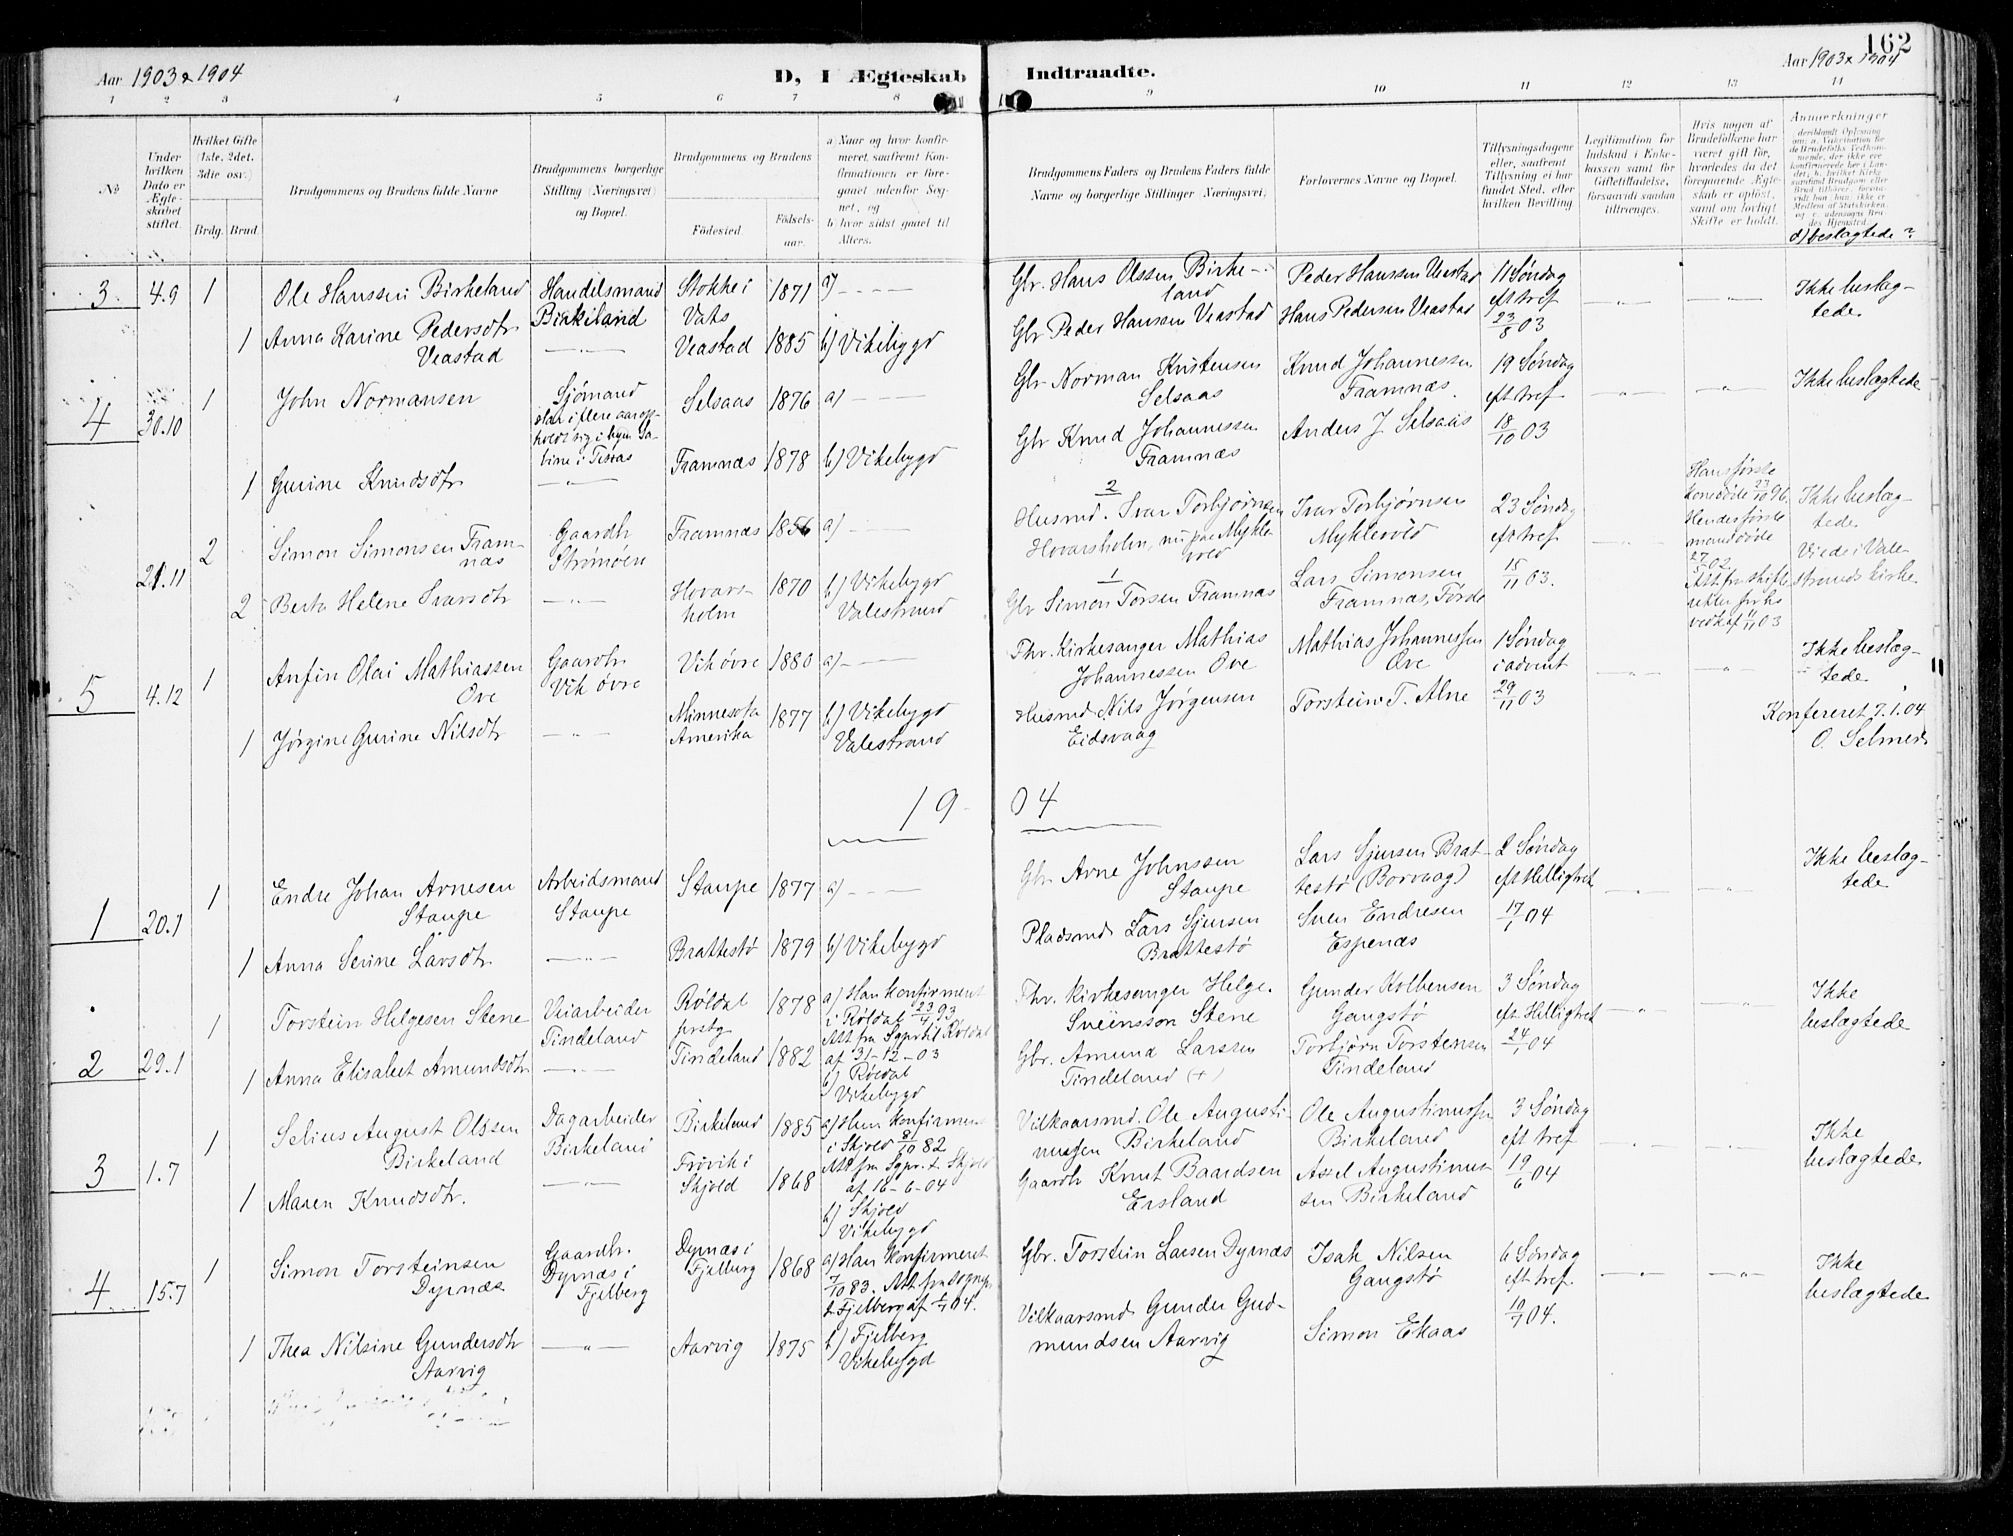 162
Aar 1903 & 1904
D, I Ægteskab Indtraadte.
Aar 1903 & 1904
1 2 3 4 5 6 7 8 9 10 11 12 13 14
№
Under hvilken Dato er Ægteskabet stiftet.
Hvilket Gifte (1ste, 2det, 3die osv.)
Brdg. Brud.
Brudgommens og Brudens fulde Navne
Brudgommens borgerlige Stilling (Næringsvei) og Bopæl.
Brudgommens og Brudens
Fødested
Fødselsaar.
a) Naar og hvor konfirmeret, saafremt Konfirmationen er foregaaet udenfor Sognet, og
b) hvor sidst gaaet til Alters.
Brudgommens Faders og Brudens Faders fulde Navne og borgerlige Stillinger (Næringsvei)
Forlovernes Navne og Bopæl.
Tillysningsdagene eller, saafremt Tillysning ei har fundet Sted, efter hvilken Bevilling
Legitimation for Indskud i Enkekassen samt for Giftetilladelse, forsaavidt saadan tiltrænges.
Hvis nogen af Brudefolkene har været gift før, hvorledes da det foregaaende Ægteskab er opløst, samt om lovligt Skifte er holdt.
Anmerkninger
d) beslægtede?
3 4.9 1 Ole Hanssen Birkeland Handelsmand Birkeland Stokke i Vats 1871 a) – – – Gbr. Hans Olssen Birkeland Peder Hanssen Veastad 11 Søndag eft tref 23/8 03 Ikke beslægtede
1 Anna Karine Pedersdtr Veastad – " – Veastad 1885 b) Vikebygd Gbr Peder Hansen Veastad Hans Pedersen Veastad
4 30.10 1 John Normansen Sjømand Selsaas 1876 a) – – – Gbr Norman Kristensen Selsaas Knud Johannessen Framnæs 19 Søndag eft tref 18/10 03 Ikke beslægtede
1 Gurine Knudsdtr – " – Framnæs 1878 b) Vikebygd Gbr Knud Johannessen Framnæs Anders J Selsaas
21.11 2 Simon Simonsen Framnæs Gaardb Strømøen Framnæs 1856 a) – – 2 Husmd. Ivar Torbjørnsen Hovarsholm, nu paa Myklevold Ivar Torbjørnsen Myklevold 23 Søndag eft tref 15/11 03. Hans første kone døde 23/10 96 Hendes første mand døde Ikke beslægtede Viede i Valestrands kirke.
2 Berta Helene Ivarsdtr – " – Hovarsholm 1870 b) Vikebygd Valestrand 1 Gbr Simon Torsen Framnæs Lars Simonsen Framnæs,
5 4.12 1 Anfin Olai Mathiassen Ove Gaardbr Vik øvre Vik øvre 1880 a) – – – Fhr. Kirkesanger Mathias Johannessen Ove Mathias Johannessen Ove 1 Søndag i advent 29/11 03 Ikke beslægtede
1 Jørgine Gurine Nilsdtr – " – Minnesota Amerika 1877 b) Vikebygd Valestrand Husmd Nils Jørgensen Eidsvaag Torstein T. Alne
Konfereret 7.1.04
O. Selmer
1904
1 20.1 1 Endre Johan Arnesen Staupe Arbeidsmand Staupe Staupe 1877 a) – – – Gbr Arne Johnssen Staupe Lars Sjursen Brattestø (Borvaag) 2 Søndag eft Helligtret 17/1 04 Ikke beslægtede
1 Anna Serine Larsdtr – " – Brattestø 1879 b) Vikebygd Pladsmd Lars Sjursen Brattestø Sven Endresen Espenæs
2 29.1 1 Torstein Helgesen Stene Veiarbeider Tindeland Røldal prstg 1878 a) Han konfirmeret i Røldal 23/4 93 Att fra Sgpr til Røldal af 31-12-03 Fhr. Kirkesanger Helge Sveinsson Stene Gunder Kolbensen Gangstø 3 Søndag eft Helligtret 24/1 04 Ikke beslægtede
1 Anna Elisabet Amundsdtr – " – Tindeland 1882 b) Røldal Vikebygd Gbr. Amund Larssen Tindeland (+) Torbjørn Torstensen Tindeland
3 1.7 1 Selius August Olssen Birkeland Dagarbeider Birkeland Birkeland 1885 a) Hun konfirmeret i Skjold 8/10 82 Att fra Sgpr. t. Skjold af 16-6-04 Vilkaarsmd. Ole Augustinussen Birkeland Ole Augustinussen Birkeland 3 Søndag eft tref 19/6 04 Ikke beslægtede
1 Maren Knudsdtr. – " – Frøvik i Skjold 1868 b) Skjold Vikebygd Gaardb Knut Baardsen Ersland Axel Augustinussen Birkeland
4 15.7 1 Simon Torsteinsen Dyrnæs Gaardbr. Dyrnæs i Fjelberg Dyrnæs i Fjelberg 1868 a) Han konfirmeret 7/10 83. Att fra Sognepr. t. Fjelberg af 1/7 04. Gbr. Torstein Larsen Dyrnæs Isak Nilsen Gangstø 6 Søndag eft tref. 10/7 04. Ikke beslægtede
1 Thea Nilsine Gundersdtr Aarvig – " – Aarvig 1875 b) Fjelberg Vikebygd Vilkaarsmd Gunder Gudmundsen Aarvig Simon Ekaas